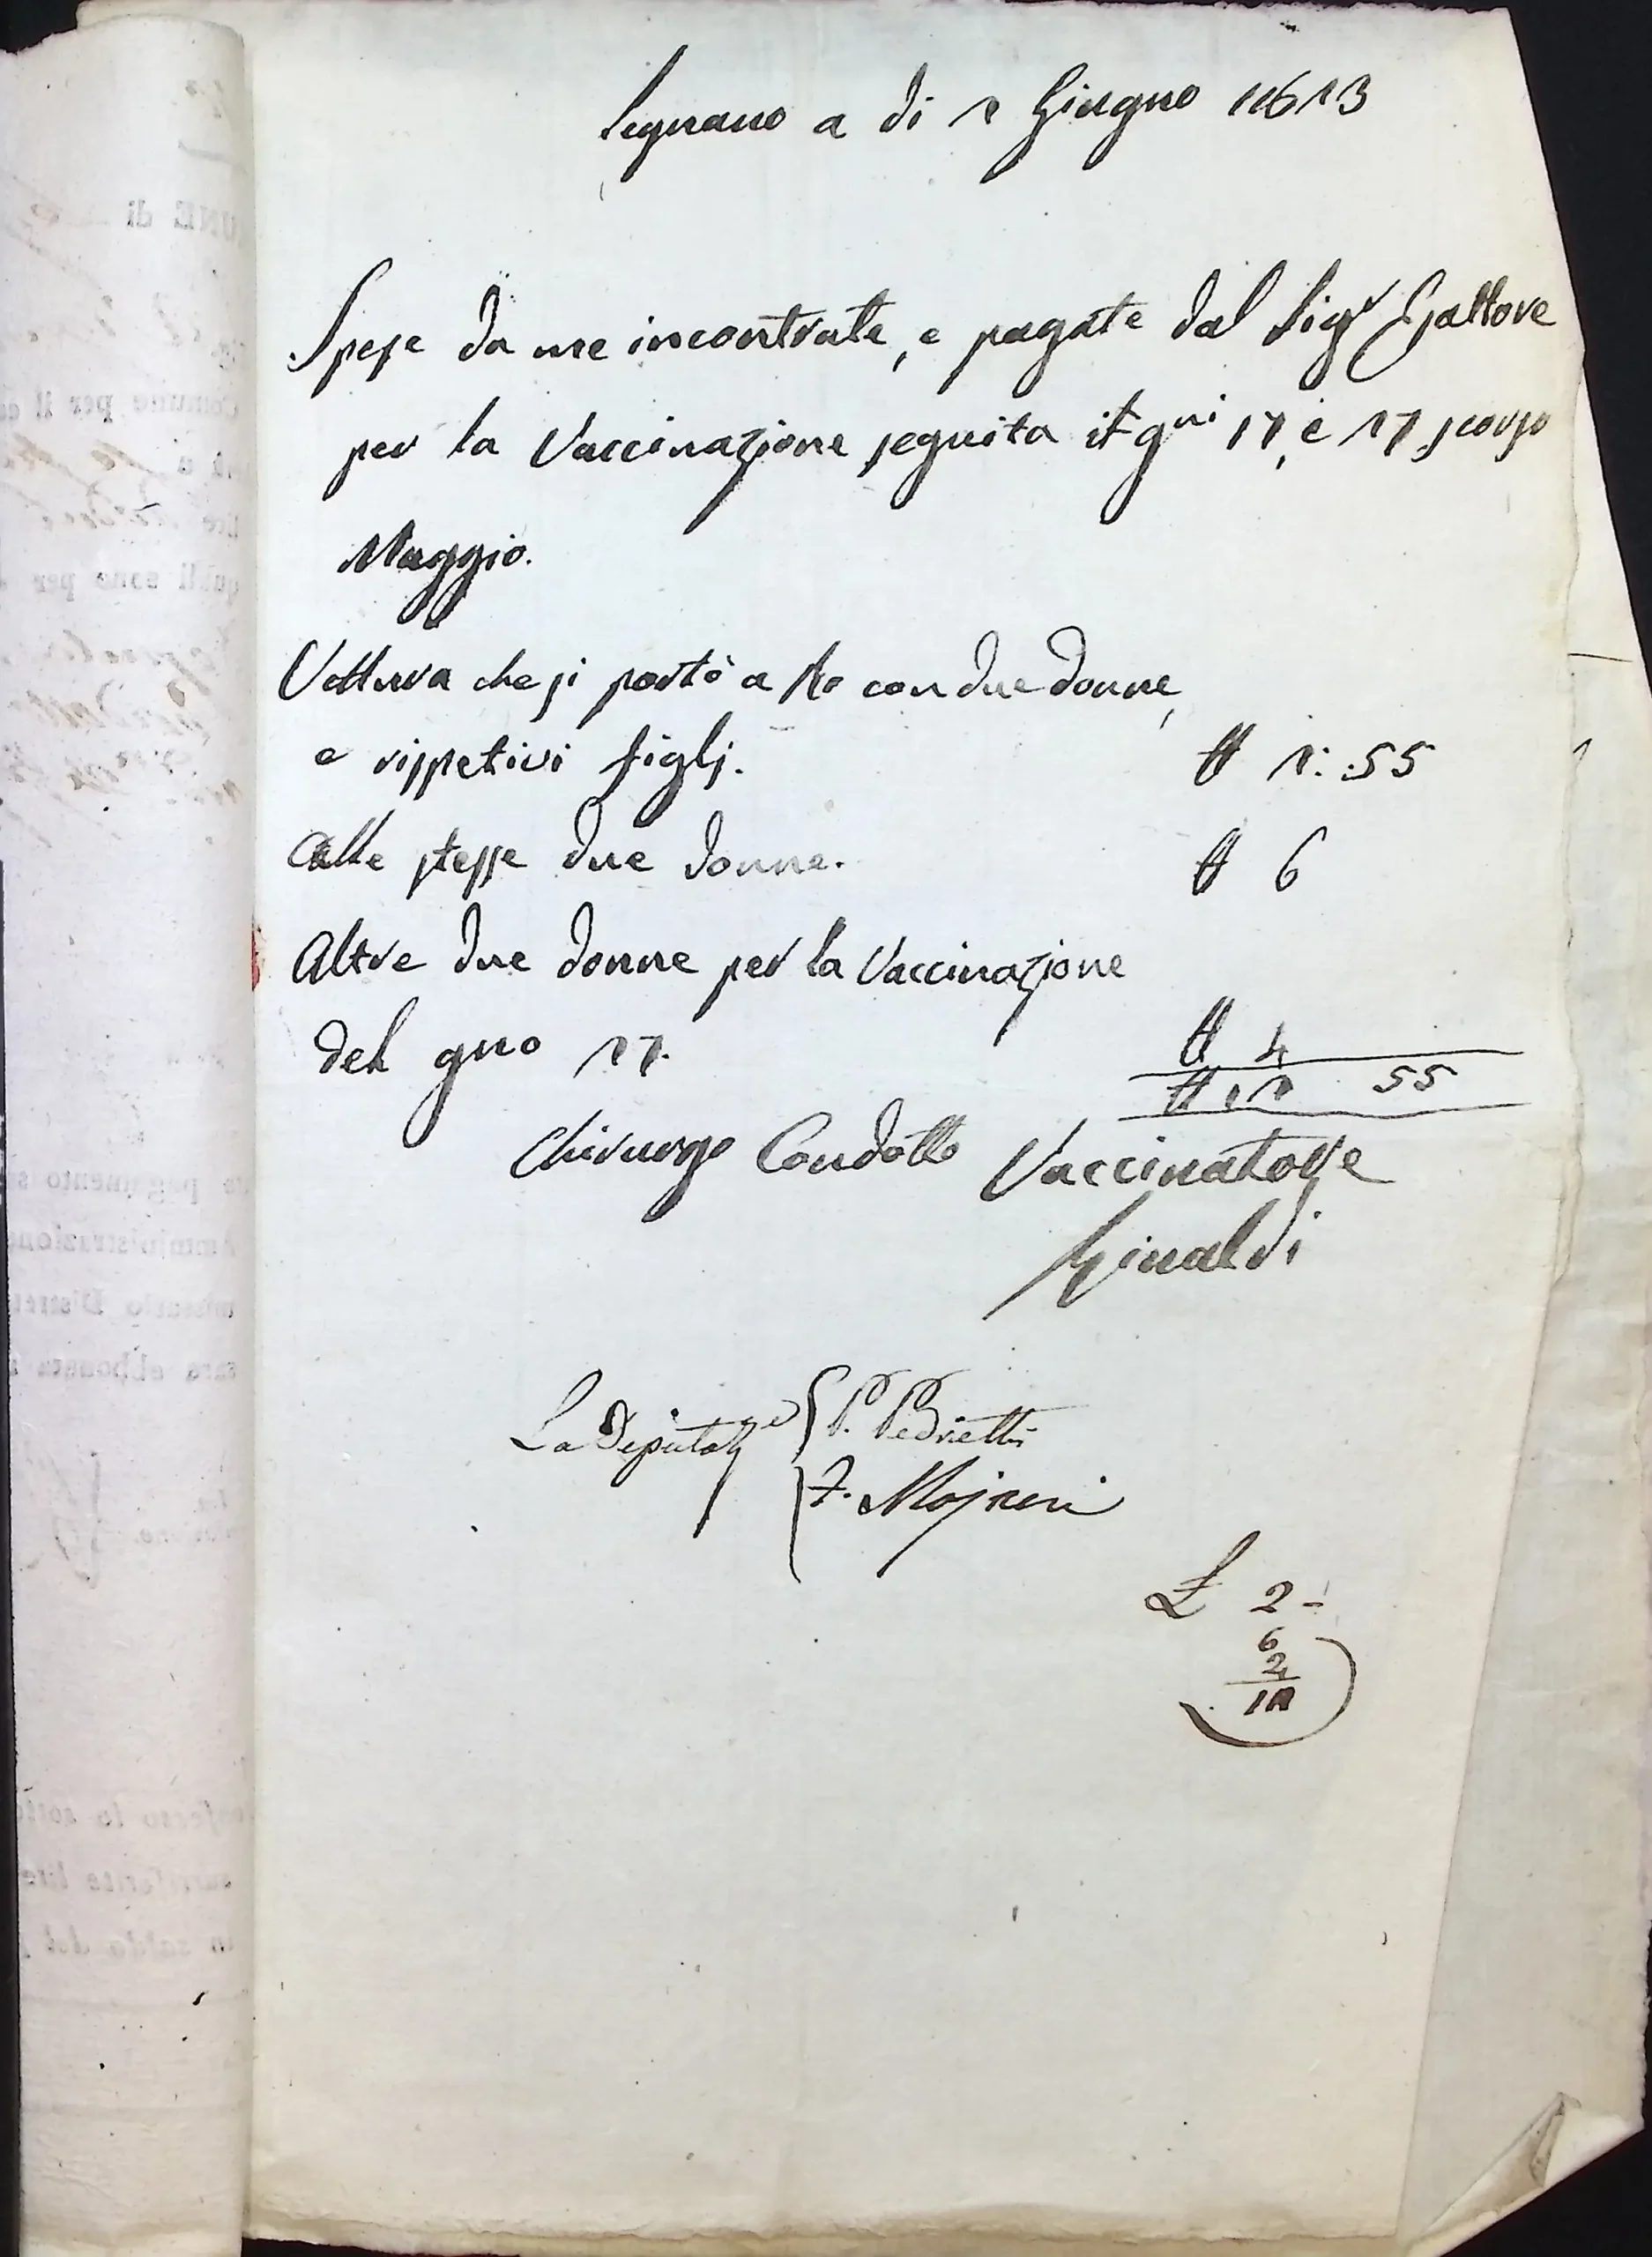 Legnano a di 1 Giugno
Spese da me incontrate, e pagate dal Sigr Esattore
per la Vaccinazione seguita gni e 17 scorso
Maggio.
Vettura che si portò a Ro con due donne,
e rispetivi figlj. 55
Alle stesse due donne. 6
Altre due donne per la Vaccinazione
del gno 17. 4
55
Chirurgo Condotto Vaccinatore
Rinaldi
La Deputaze P. Pedrietti
£ 2-
6
2
UNE di
Comune per il
quali sono per
pagamento
Amministrazione
Distret
in saldo del